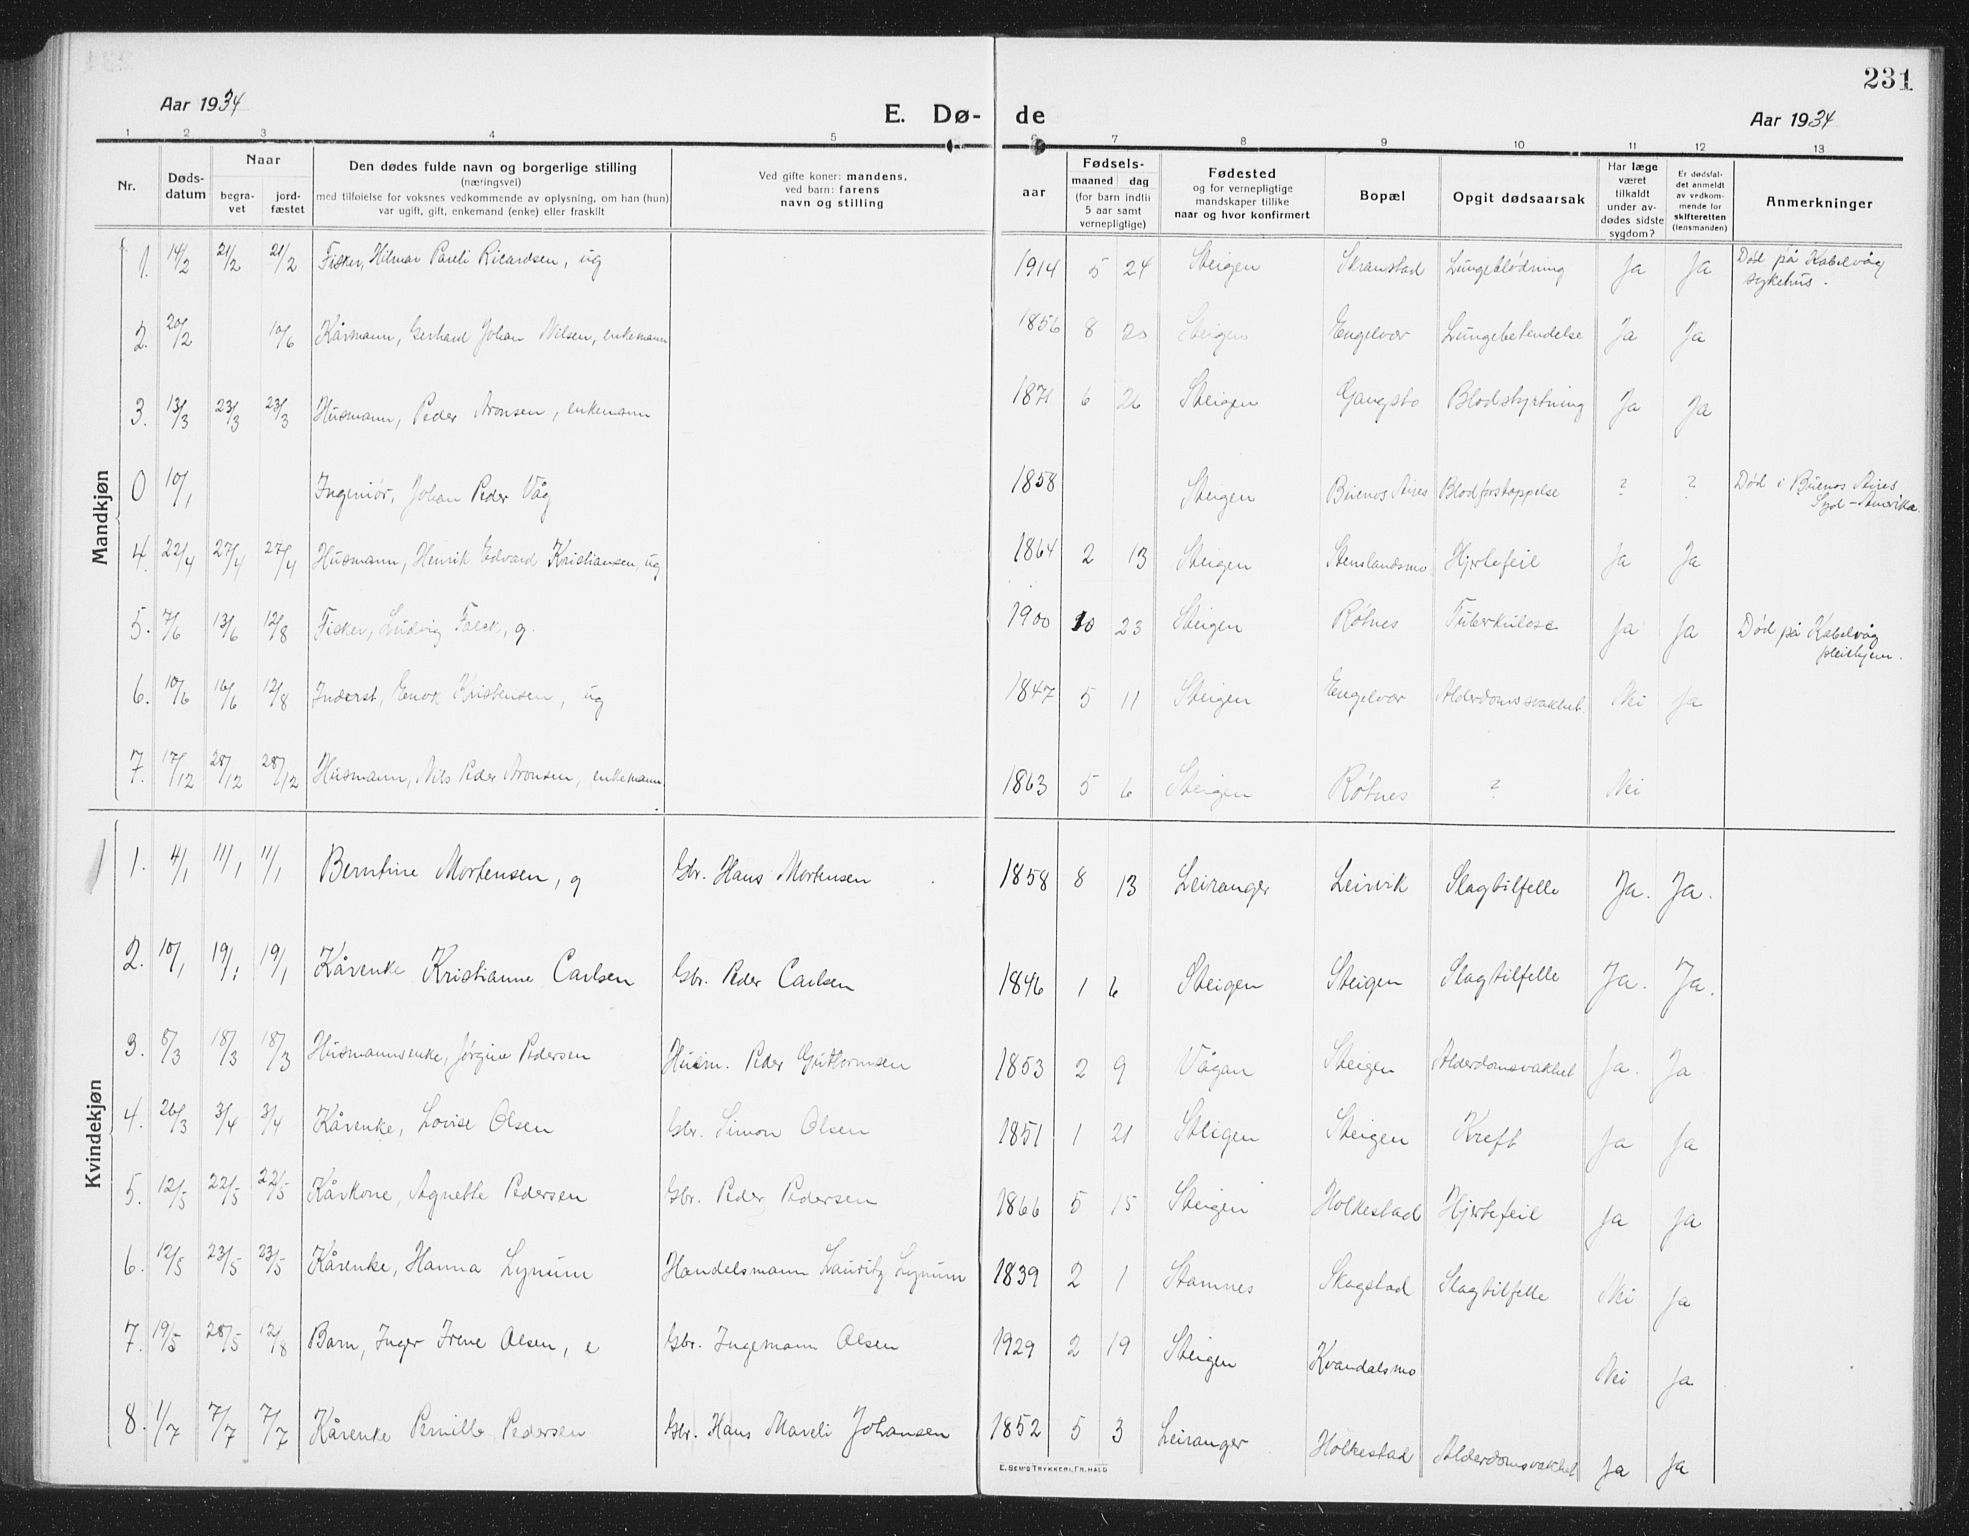 231
Aar 1934
E. Dø- de
Aar 1934
1 2 3 4 5 6 7 8 9 10 11 12 13
Nr.
Døds-
datum
Naar
begra-
vet
jord-
fæstet
Den dødes fulde navn og borgerlige stilling
(næringsvei)
med tilføielse for voksnes vedkommende av oplysning, om han (hun)
var ugift, gift, enkemand (enke) eller fraskilt
Ved gifte koner: mandens,
ved barn: farens
navn og stilling
Fødsels-
aar
maaned dag
(for barn indtil
5 aar samt
vernepligtige)
Fødested
og for vernepligtige
mandskaper tillike
naar og hvor konfirmert
Bopæl
Opgit dødsaarsak
Har læge
været
tilkaldt
under av-
dødes sidste
sygdom?
Er dødsfal-
det anmeldt
av vedkom-
mende for
skifteretten
(lensmanden)
Anmerkninger
Mandkjøn
1. 14/2 21/2 21/2 Fisker, Hilmar Pareli Ricardsen, ug 1914 5 24 Steigen Skranstad Lungeblødning Ja Ja Død på Kabelvåg
sykehus.
2. 20/2 10/6 Kårmann, Gerhard Johan Nilsen, enkemann 1856 8 20 Steigen Engelvær Lungebetendelse Ja Ja
3. 13/3 23/3 23/3 Husmann, Peder Aronsen, enkemann 1871 6 26 Steigen Gangstø Blodstyrtning Ja Ja
0 10/1 Ingeniör, Johan Peder Våg 1858 Steigen Buenos Aires Blodforstoppelse ? ? Død i Buenos Aires
Syd-Amerika.
4. 22/4 27/4 27/4 Husmann, Henrik Edvard Kristiansen, ug 1864 2 13 Steigen Stenslandsmo Hjertefeil Ja Ja
5. 7/6 13/6 12/8 Fisker, Ludvig Falck, g. 1900 10 23 Steigen Røtnes Tuberkulose Ja Ja Død på Kabelvåg
pleiehjem.
6. 10/6 16/6 12/8 Inderst, Enok Kristensen, ug 1847 5 11 Steigen Engelvær Alderdomssvakhet. Nei Ja
7. 17/12 28/12 28/12 Husmann, Nils Peder Aronsen, enkemann. 1863 5 6 Steigen Røtnes ? Nei
Kvindekjøn
1. 4/1 11/1 11/1 Berntine Mortensen, g Gbr. Hans Mortensen 1858 8 13 Leiranger Leirvik Slagtilfelle Ja. Ja.
2. 10/1 19/1 19/1 Kårenke Kristianne Carlsen Gbr. Peder Carlsen 1846 1 6 Steigen Steigen Slagtilfelle Ja. Ja.
3. 8/3 18/3 18/3 Husmannsenke, Jørgine Pedersen Husm. Peder Guttormsen 1853 2 9 Vågan Steigen Alderdomsvakhet Ja. Ja
4. 26/3 3/4 3/4 Kårenke, Lovise Olsen Gbr. Simon Olsen 1851 1 21 Steigen Steigen Kreft Ja Ja
5. 12/5 22/5 22/5 Kårkone, Agnette Pedersen Gbr. Peder Pedersen 1866 5 15 Steigen Holkestad Hjertefeil Ja Ja
6. 12/5 23/5 23/5 Kårenke, Hanna Lynum Handelsmann Lauritz Lynum 1839 2 1 Stamnes Skagstad Slagtilfelle Nei Ja
7. 19/5 28/5 12/8 Barn, Inger Irene Olsen, e Gbr. Ingemann Olsen 1929 2 19 Steigen Kvandalsmo Nei Ja
8. 1/7 7/7 7/7 Kårenke Pernille Pedersen Gbr. Hans Mareli Johansen 1852 5 3 Leiranger Holkestad Alderdomsvakhet Ja Ja
E. SEM'S TRYKKERI, FR.HALD